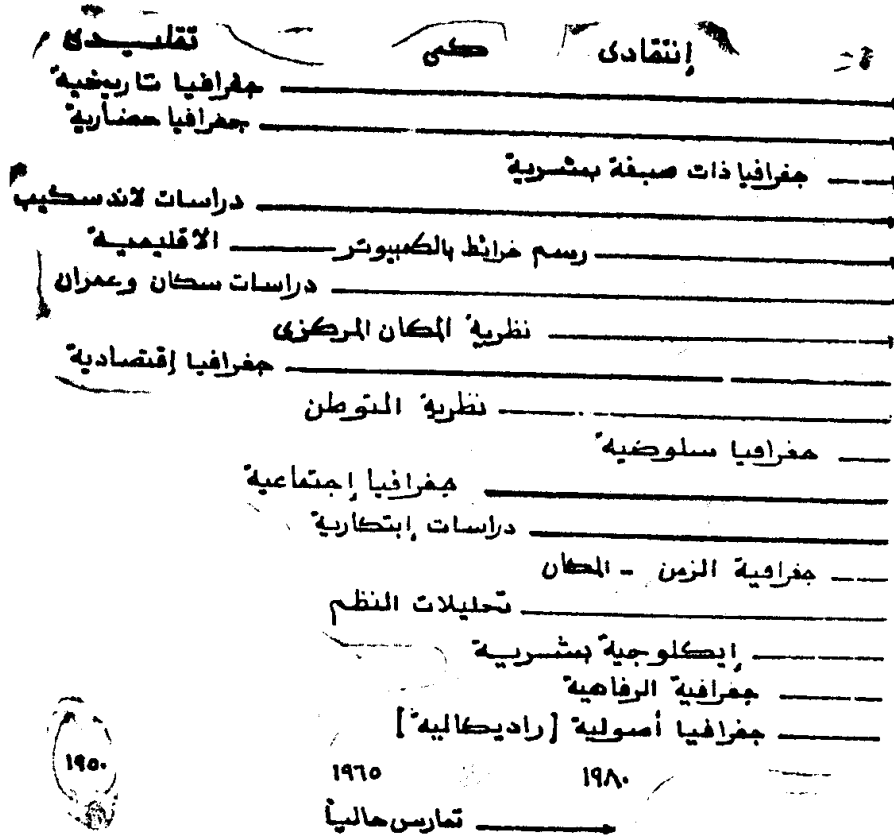 إنتقادى كمى تقليدى
جغرافيا تاريخية
جغرافيا حضارية
جغرافيا ذات صبغة بشرية
دراسات لاندسكيب
رسم خرائط بالكمبيوتر الاقليمية
دراسات سكان وعمران
نظرية المكان المركزى
جغرافيا إقتصادية
نظرية التوطن
جغرافيا سلوضية
جغرافيا إجتماعية
دراسات إبتكارية
جغرافية الزمن - المكان
تحليلات النظم
إيكلوجية بشرية
جغرافية الرفاهية
جغرافيا أصولية [راديكالية]
١٩٨٠ ١٩٦٥ ١٩٥٠
تمارس حالياً